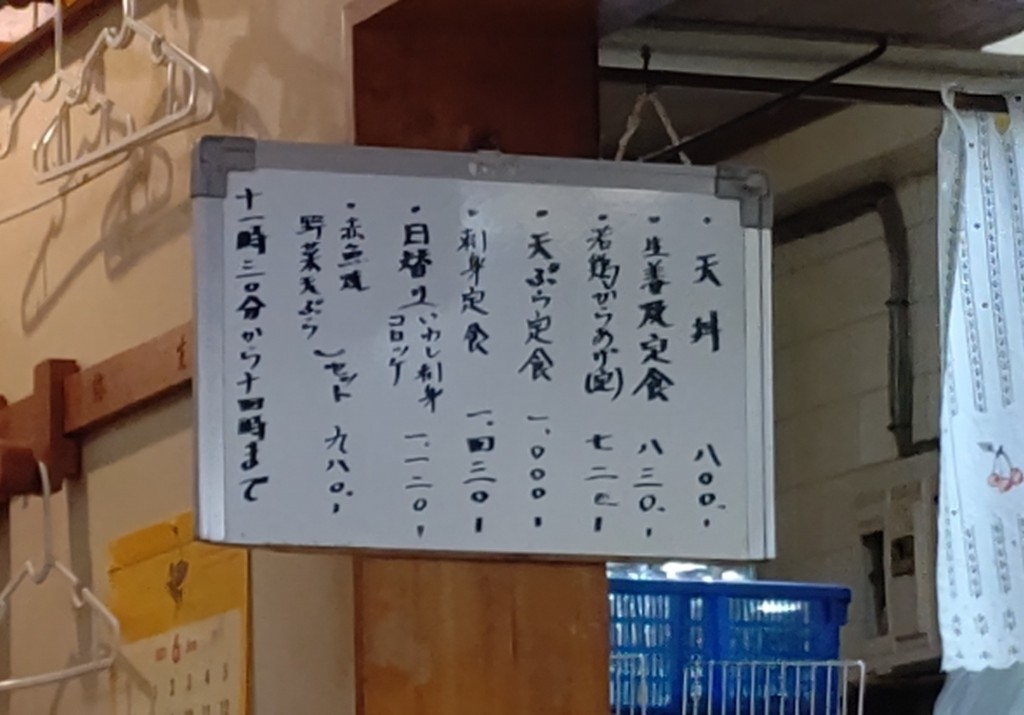 ・天丼 八〇〇、
・生姜定食 八三〇、
・若鶏からあげ(定) 七二〇、
・天ぷら定食 一、〇〇〇、
・刺身定食 一、四三〇、
・日替り(いわし刺身 一、一二〇、
コロッケ
・赤魚煮
野菜天ぷら)セット 九八〇、
十一時三〇分から十四時まで
6
1 2 3 4 5